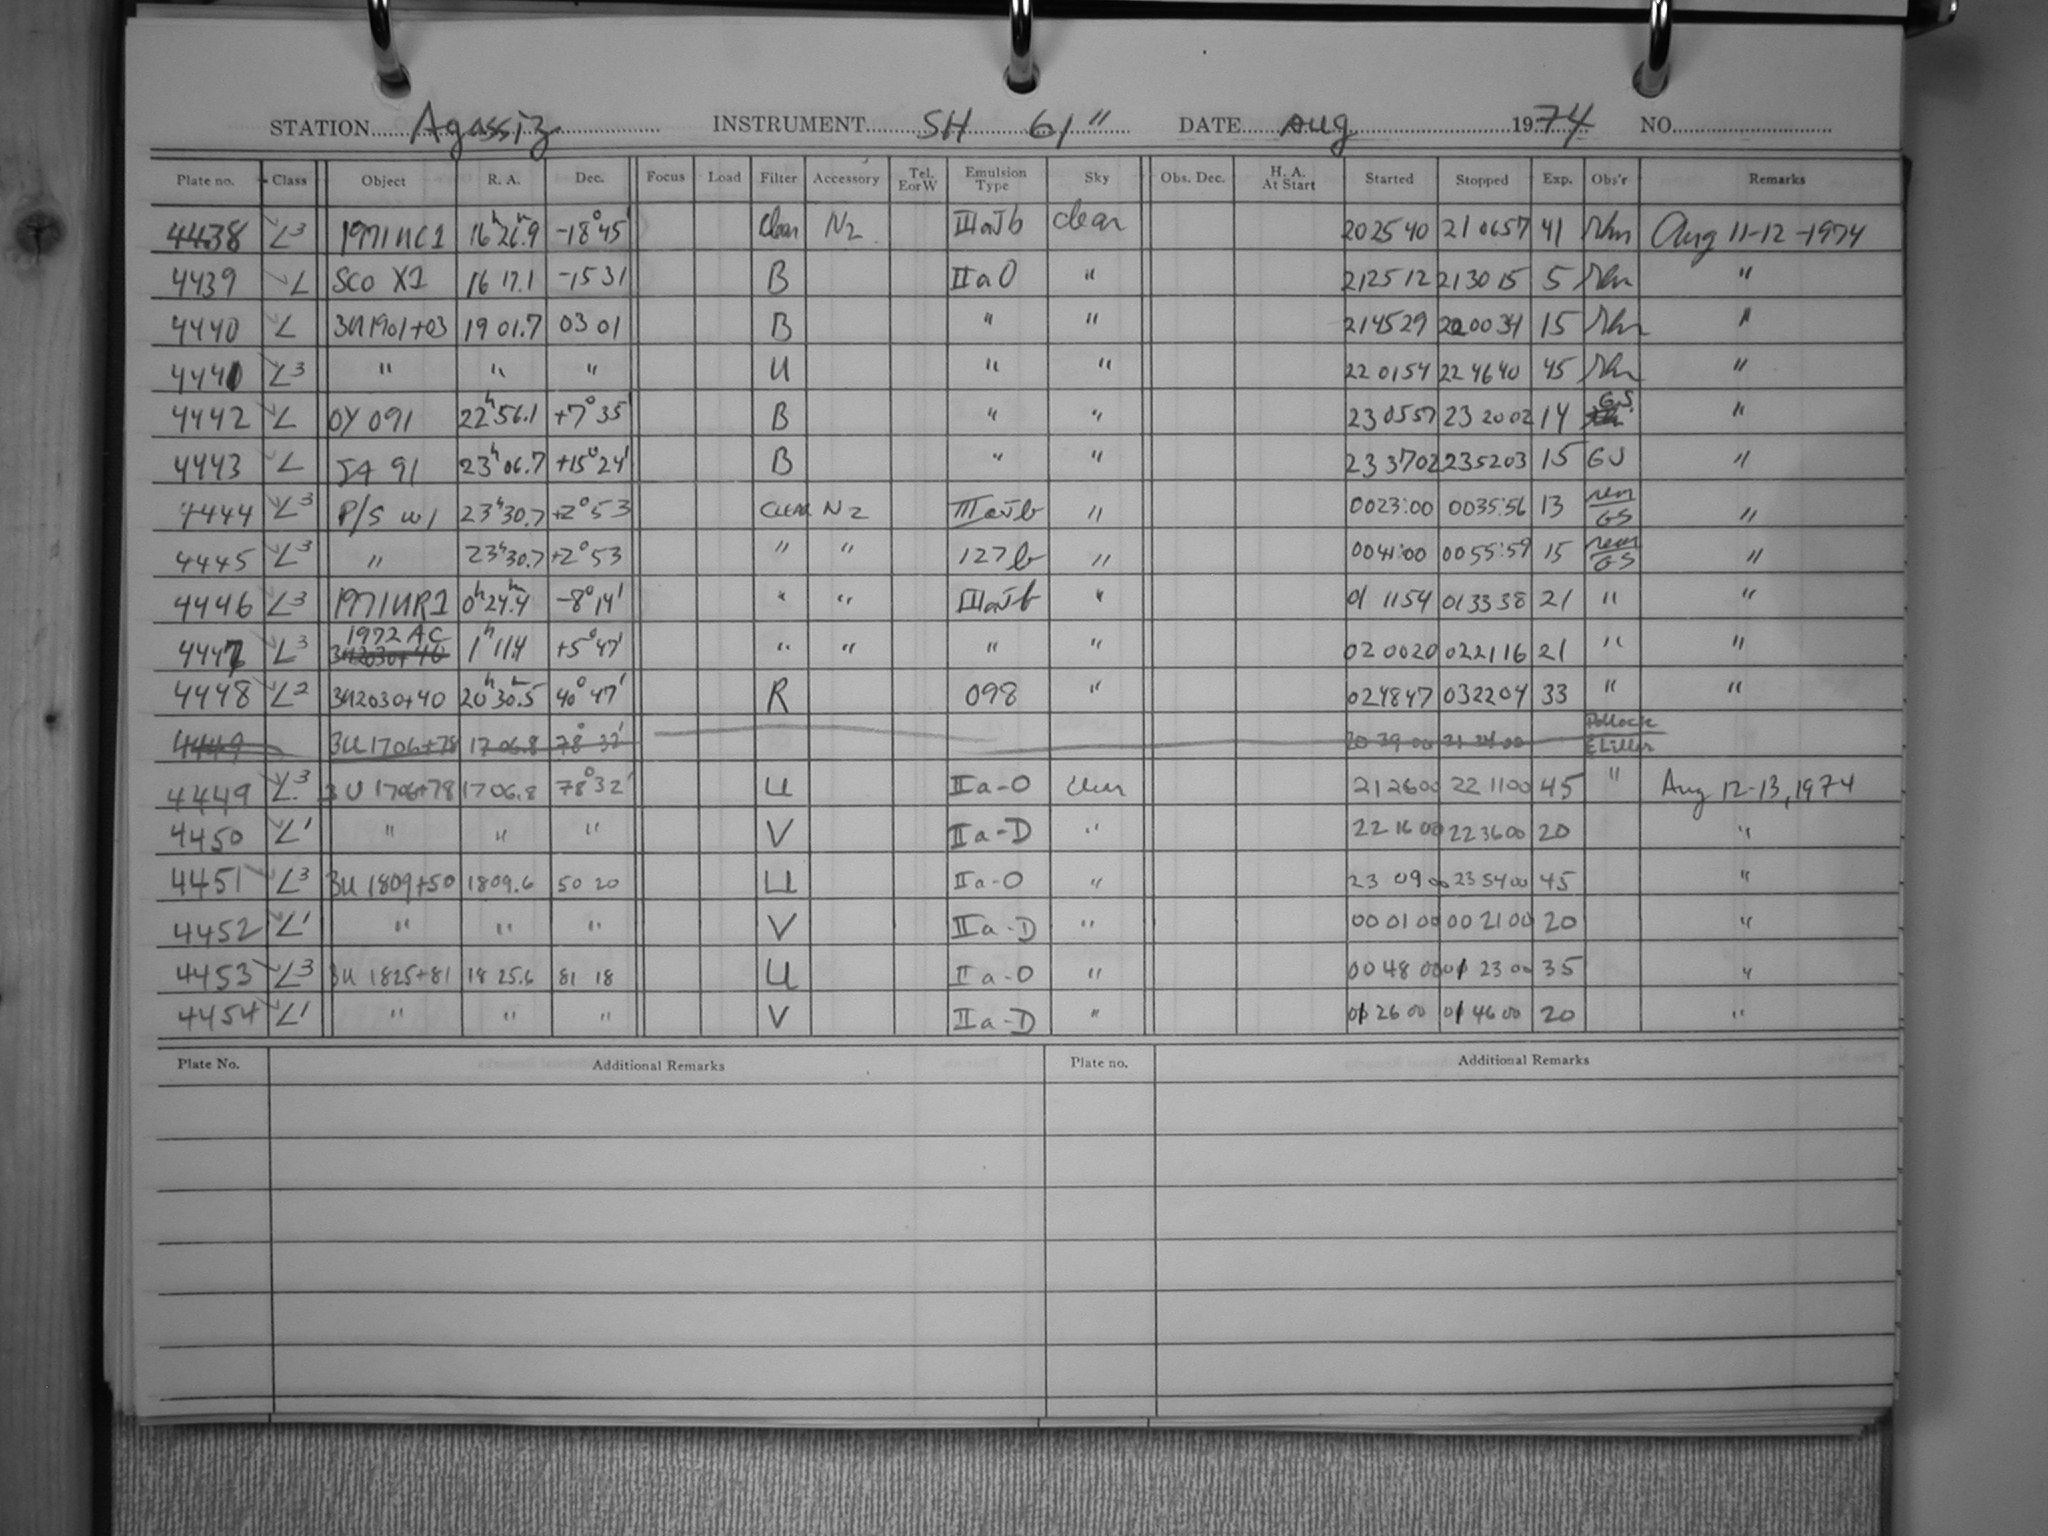 STATION Agassiz INSTRUMENT SH 61" DATE Aug 1974 NO.
Plate no. Class Object R. A. Dec. Focus Load Filter Accessory Tel. E or W Emulsion Type Sky Obs. Dec. H. A. At Start Started Stopped Exp. Obs'r Remarks
4438 L3 1971UC1 16h26.9 -18°45' Clear N2 IIIaJb clear 20 25 40 21 06 57 41 Aug 11-12-1974
4439 L SCO X1 16 17.1 -15 31 B IIaO " 21 25 12 21 30 15 5 "
4440 L 3U1901+03 19 01.7 03 01 B " " 21 45 29 22 00 34 15 "
4441 L3 " " " U " " 22 01 54 22 46 40 45 "
4442 L OY 091 22h56.1 +7°35' B " " 23 05 57 23 20 02 14 G.S. "
4443 L JA 91 23h06.7 +15°24' B " " 23 37 02 23 52 03 15 GS "
4444 L3 P/S W1 23h30.7 +2°53 CLEAR N2 IIIaJb " 0023:00 0035:56 13 rem/GS "
4445 L3 " 23h30.7 +2°53 " " 127b " 0041:00 0055:59 15 rem/GS "
4446 L3 1971UR1 0h24.4m -8°14' " " IIIaJb " 01 11 54 01 33 38 21 " "
4447 L3 1972 AC 3U2030+40 1h11.4 +5°47' " " " " 02 00 20 02 21 16 21 " "
4448 L2 3U2030+40 20h30.5m 40°47' R 098 " 02 48 47 03 22 04 33 " "
4449 3U 1706+78 17 06.8 78°32' 20 39 00 21 24 00 Pollock E Liller
4449 L3 3U 1706+78 17 06.8 78°32' U IIa-O clear 21 26 00 22 11 00 45 " Aug 12-13, 1974
4450 L1 " " " V IIa-D " 22 16 00 22 36 00 20 "
4451 L3 3U 1809+50 18 09.6 50 20 U IIa-O " 23 09 00 23 54 00 45 "
4452 L1 " " " V IIa-D " 00 01 00 00 21 00 20 "
4453 L3 3U 1825+81 18 25.6 81 18 U IIa-O " 00 48 00 01 23 00 35 "
4454 L1 " " " V IIa-D " 01 26 00 01 46 00 20 "
Plate No. Additional Remarks Plate no. Additional Remarks